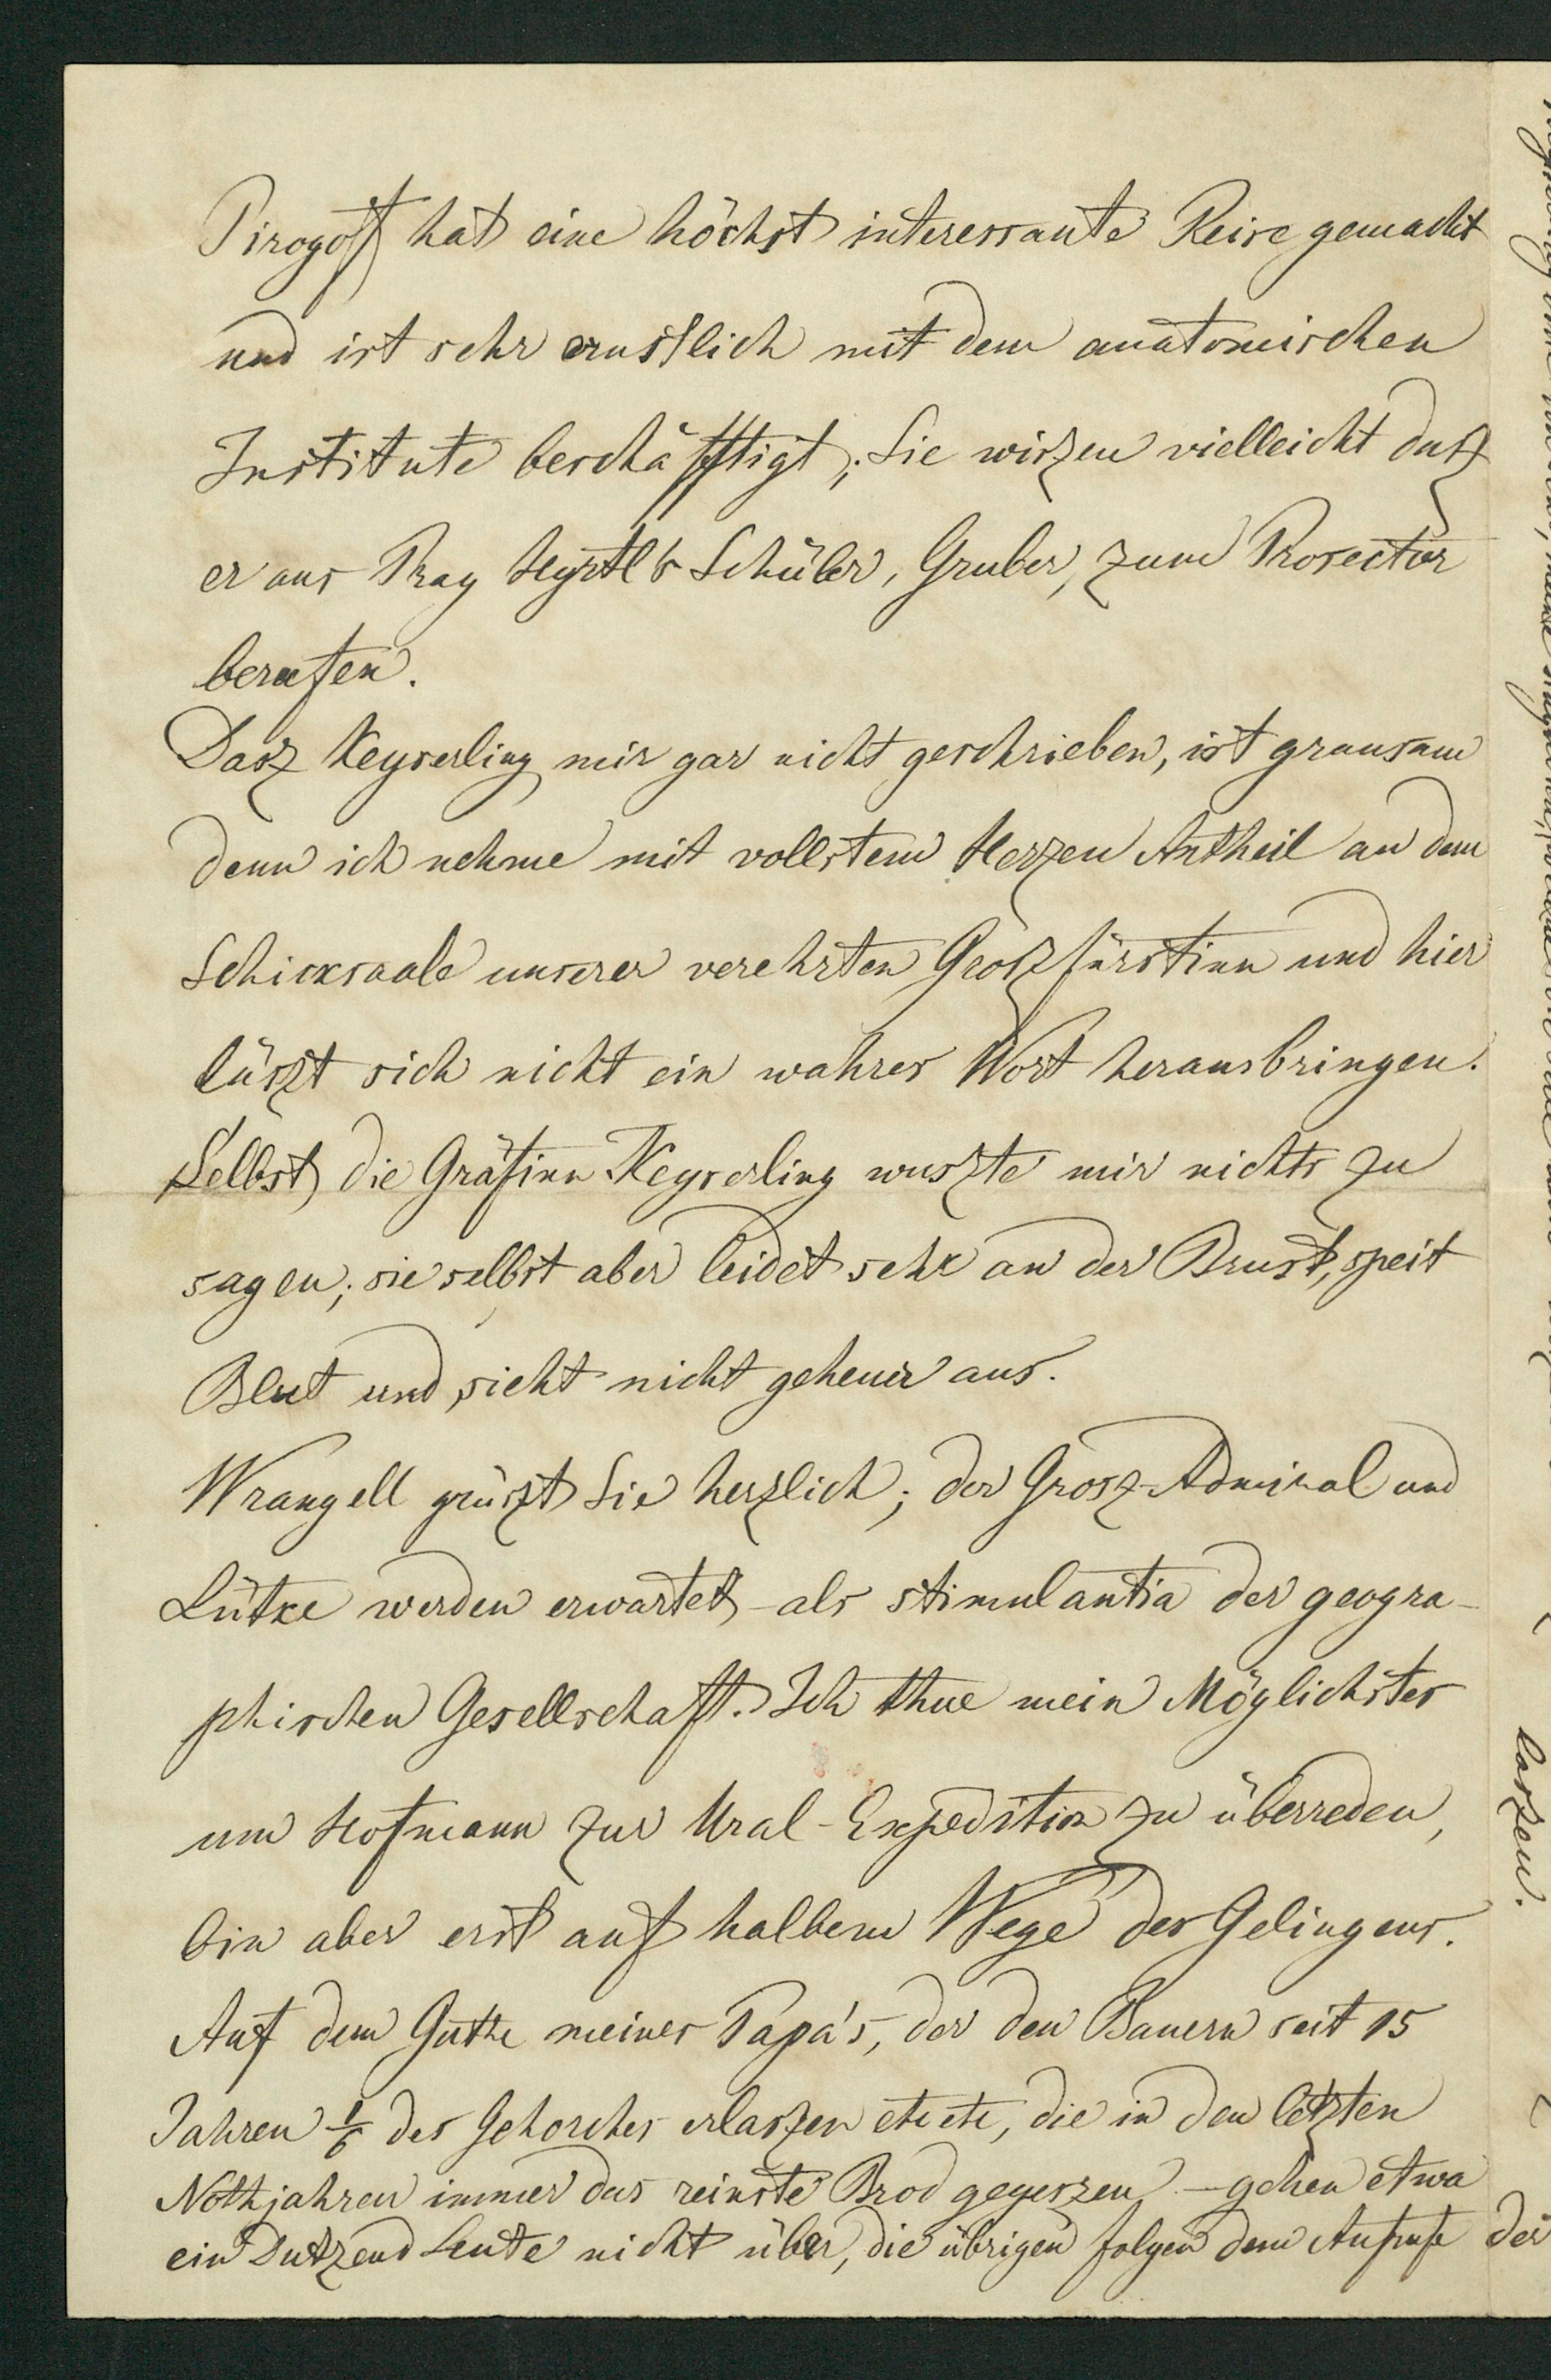 Pirogoff hat eine höchst interessante Reise gemacht
und ist sehr ernstlich mit dem anatomischen
Institute beschäfftigt; Sie wiszen vielleicht dasz
er aus Prag Hyrtl's Schüler, Gruber, zum Prosector
berufen.
Dasz Keyserling mir gar nicht geschrieben, ist grausam
denn ich nehme mit vollstem Herzen Antheil an dem
Schicksaale unserer verehrten Groszfürstinn und hier
läszt sich nicht ein wahres Wort herausbringen.
Selbst die Gräfinn Keyserling wuszte mir nichts zu
sagen; sie selbst aber leidet sehr an der Brust, speit
Blut und sieht nicht geheuer aus.
Wrangell grüszt Sie herzlich; der Grosz-Admiral und
Lütke werden erwartet – als stimulantia der geogra-
phischen Gesellschaft. Ich thue mein Möglichstes
um Hofmann zur Ural-Expedition zu überreden,
bin aber erst auf halbem Wege des Gelingens.
Auf dem Guthe meines Papa's, der den Bauern seit 15
Jahren 1/6 des Gehorches erlaszen etc etc, die in den letzten
Nothjahren immer das reinste Brod gegeszen – gehen etwa
ein Dutzend Leute nicht über, die übrigen folgen dem Aufrufe der
laszen.